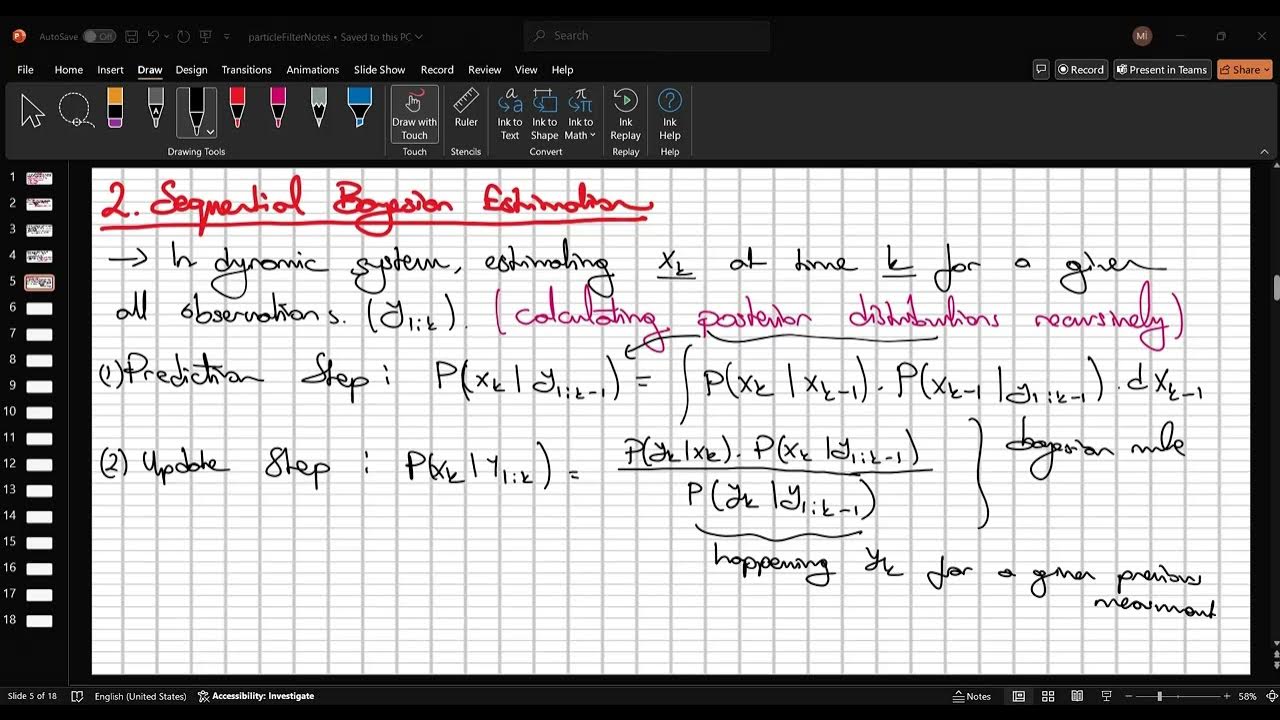 AutoSave Off particleFilterNotes • Saved to this PC Search MI
File Home Insert Draw Design Transitions Animations Slide Show Record Review View Help Record Present in Teams Share
Draw with Touch Ruler Ink to Text Ink to Shape Ink to Math Ink Replay Ink Help
Drawing Tools Touch Stencils Convert Replay Help
1
2
3
4
5
6
7
8
9
10
11
12
13
14
15
16
17
18
2. Sequential Bayesian Estimation
→ In dynamic system, estimating x_k at time k for a given
all observations. (y_{1:k}). (calculating posterior distributions recursively)
(1) Prediction Step: P(x_k | y_{1:k-1}) = ∫ P(x_k | x_{k-1}) . P(x_{k-1} | y_{1:k-1}) . dx_{k-1}
(2) Update Step : P(x_k | y_{1:k}) = P(y_k | x_k) . P(x_k | y_{1:k-1}) / P(y_k | y_{1:k-1}) } bayesian rule
happening y_k for a given previous
mearment
Slide 5 of 18 English (United States) Accessibility: Investigate Notes 58%